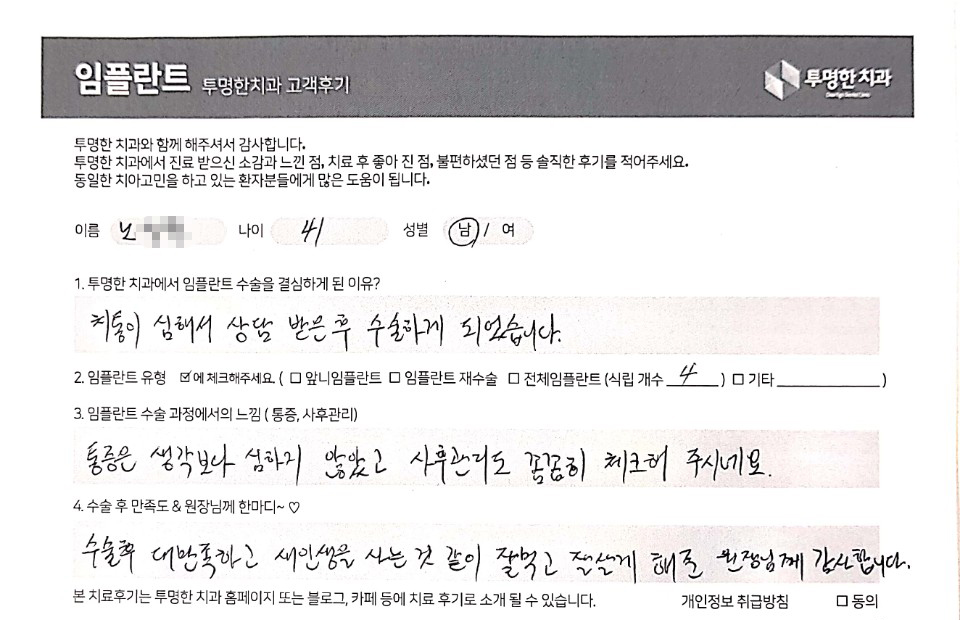 임플란트 투명한치과 고객후기
투명한 치과
투명한 치과와 함께 해주셔서 감사합니다.
투명한 치과에서 진료 받으신 소감과 느낀 점, 치료 후 좋아 진 점, 불편하셨던 점 등 솔직한 후기를 적어주세요.
동일한 치아고민을 하고 있는 환자분들에게 많은 도움이 됩니다.
이름 노 나이 41 성별 남 / 여
1. 투명한 치과에서 임플란트 수술을 결심하게 된 이유?
치통이 심해서 상담 받은 후 수술하게 되었습니다.
2. 임플란트 유형 ☑에 체크해주세요. ( □ 앞니임플란트 □ 임플란트 재수술 □ 전체임플란트 (식립 개수 4 ) □ 기타 )
3. 임플란트 수술 과정에서의 느낌 ( 통증, 사후관리)
통증은 생각보다 심하지 않았고 사후관리도 꼼꼼히 체크해 주시네요.
4. 수술 후 만족도 & 원장님께 한마디~ ♡
수술후 대만족하고 새인생을 사는 것 같이 잘먹고 잘살게 해준 원장님께 감사합니다.
본 치료후기는 투명한 치과 홈페이지 또는 블로그, 카페 등에 치료 후기로 소개 될 수 있습니다. 개인정보 취급방침 □ 동의